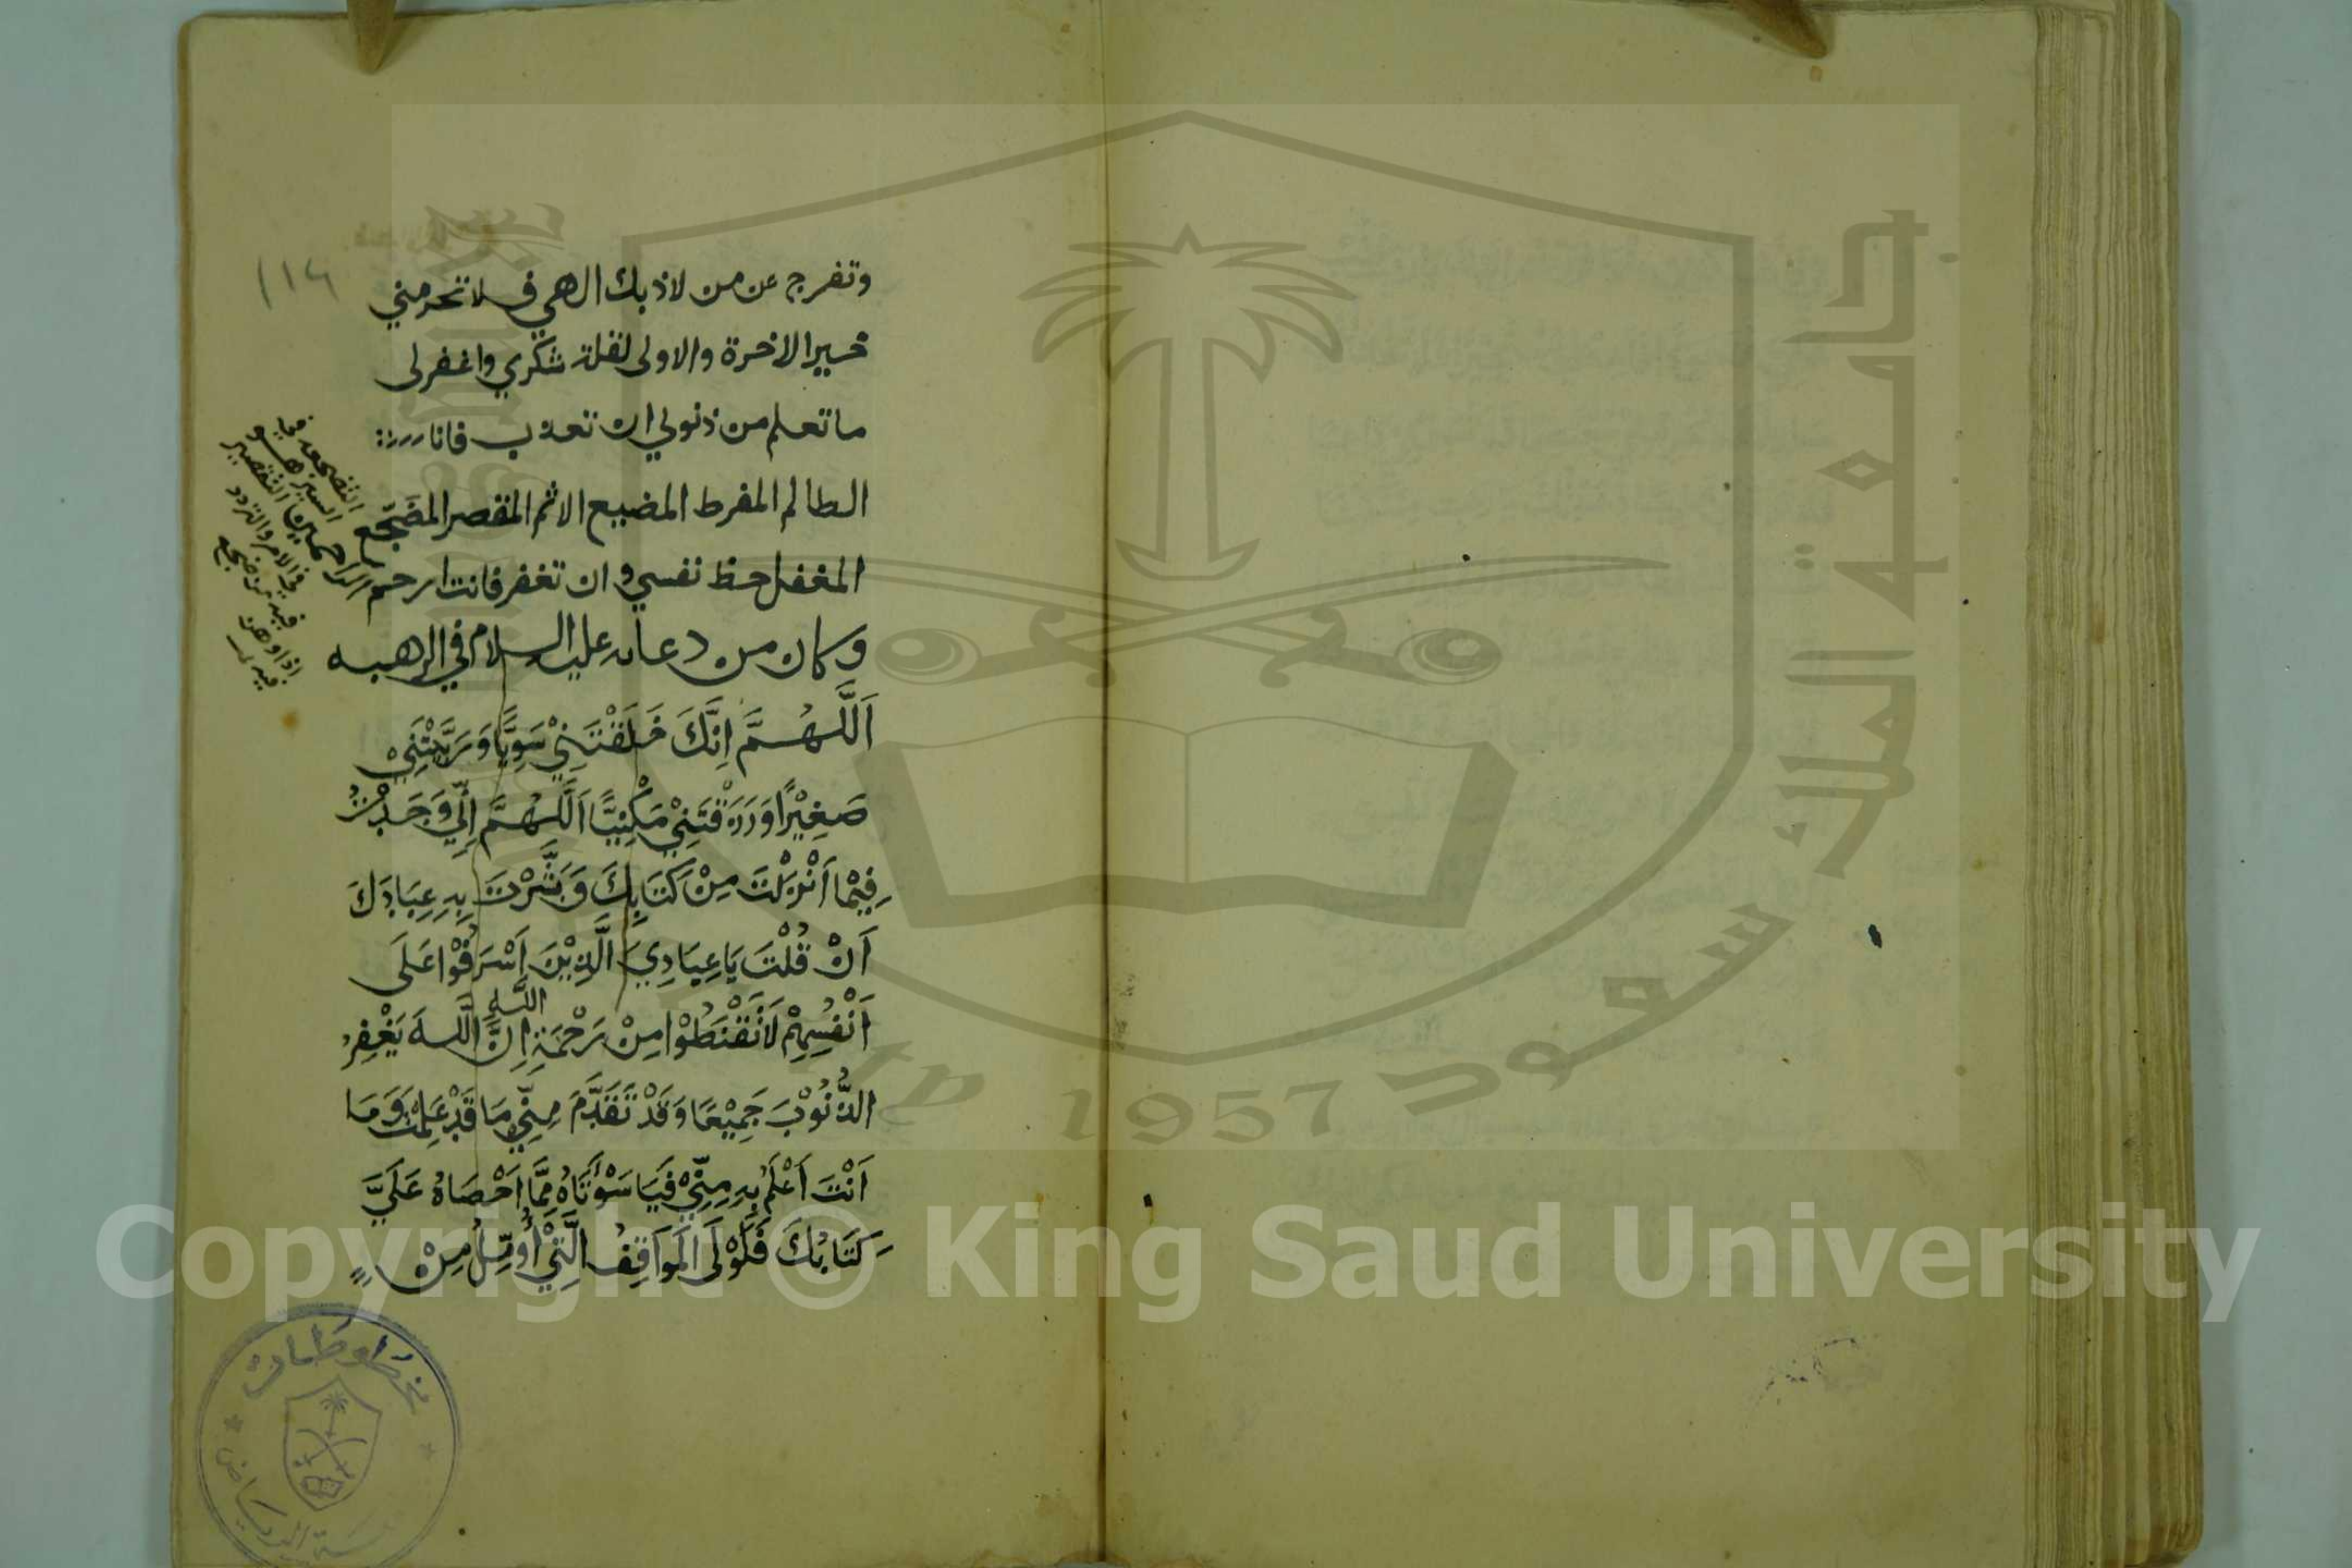 وتفرج عن من لاذ بك الهي فلا تحرمني
خير الاخرة والاولى لقلة شكري واغفرلى
ما تعلم من ذنوبي ان تعذب فانا
الظالم المفرط المضيع الاثم المقصر المضجع
المغفل حظ نفسي وان تغفر فانت ارحم الراحمين
وكان من دعائه عليه السلام في الرهبه
اَللَّهُمَّ اِنَّكَ خَلَقْتَنِيْ سَوِيًّا وَرَبَّيْتَنِيْ
صَغِيْرًا وَرَزَقْتَنِيْ مَكْفِيًّا اَللَّهُمَّ اِنِّي وَجَدْتُ
فِيْمَا اَنْزَلْتَ مِنْ كِتَابِكَ وَبَشَّرْتَ بِهِ عِبَادَكَ
اَنْ قُلْتَ يَا عِبَادِيَ الَّذِيْنَ اَسْرَفُوْا عَلَى
اَنْفُسِهِمْ لَا تَقْنَطُوْا مِنْ رَحْمَةِ اللهِ اِنَّ اللهَ يَغْفِرُ
الذُّنُوْبَ جَمِيْعًا وَقَدْ تَقَدَّمَ مِنِّي مَا قَدْ عَلِمْتَ وَمَا
اَنْتَ اَعْلَمُ بِهِ مِنِّيْ فَيَا سَوْأَتَاهُ مِمَّا اَحْصَاهُ عَلَيَّ
كِتَابُكَ فَلَوْلَى الْمَوَاقِفُ الَّتِيْ أُؤَمِّلُ مِنْ
التضجع في
السير هو
التقصير
في الامر والتردد
فيه من ضجع
اذا وهن
فيه
١١٤
مخطوطات
جامعة الملك سعود
1957
Copyright © King Saud University